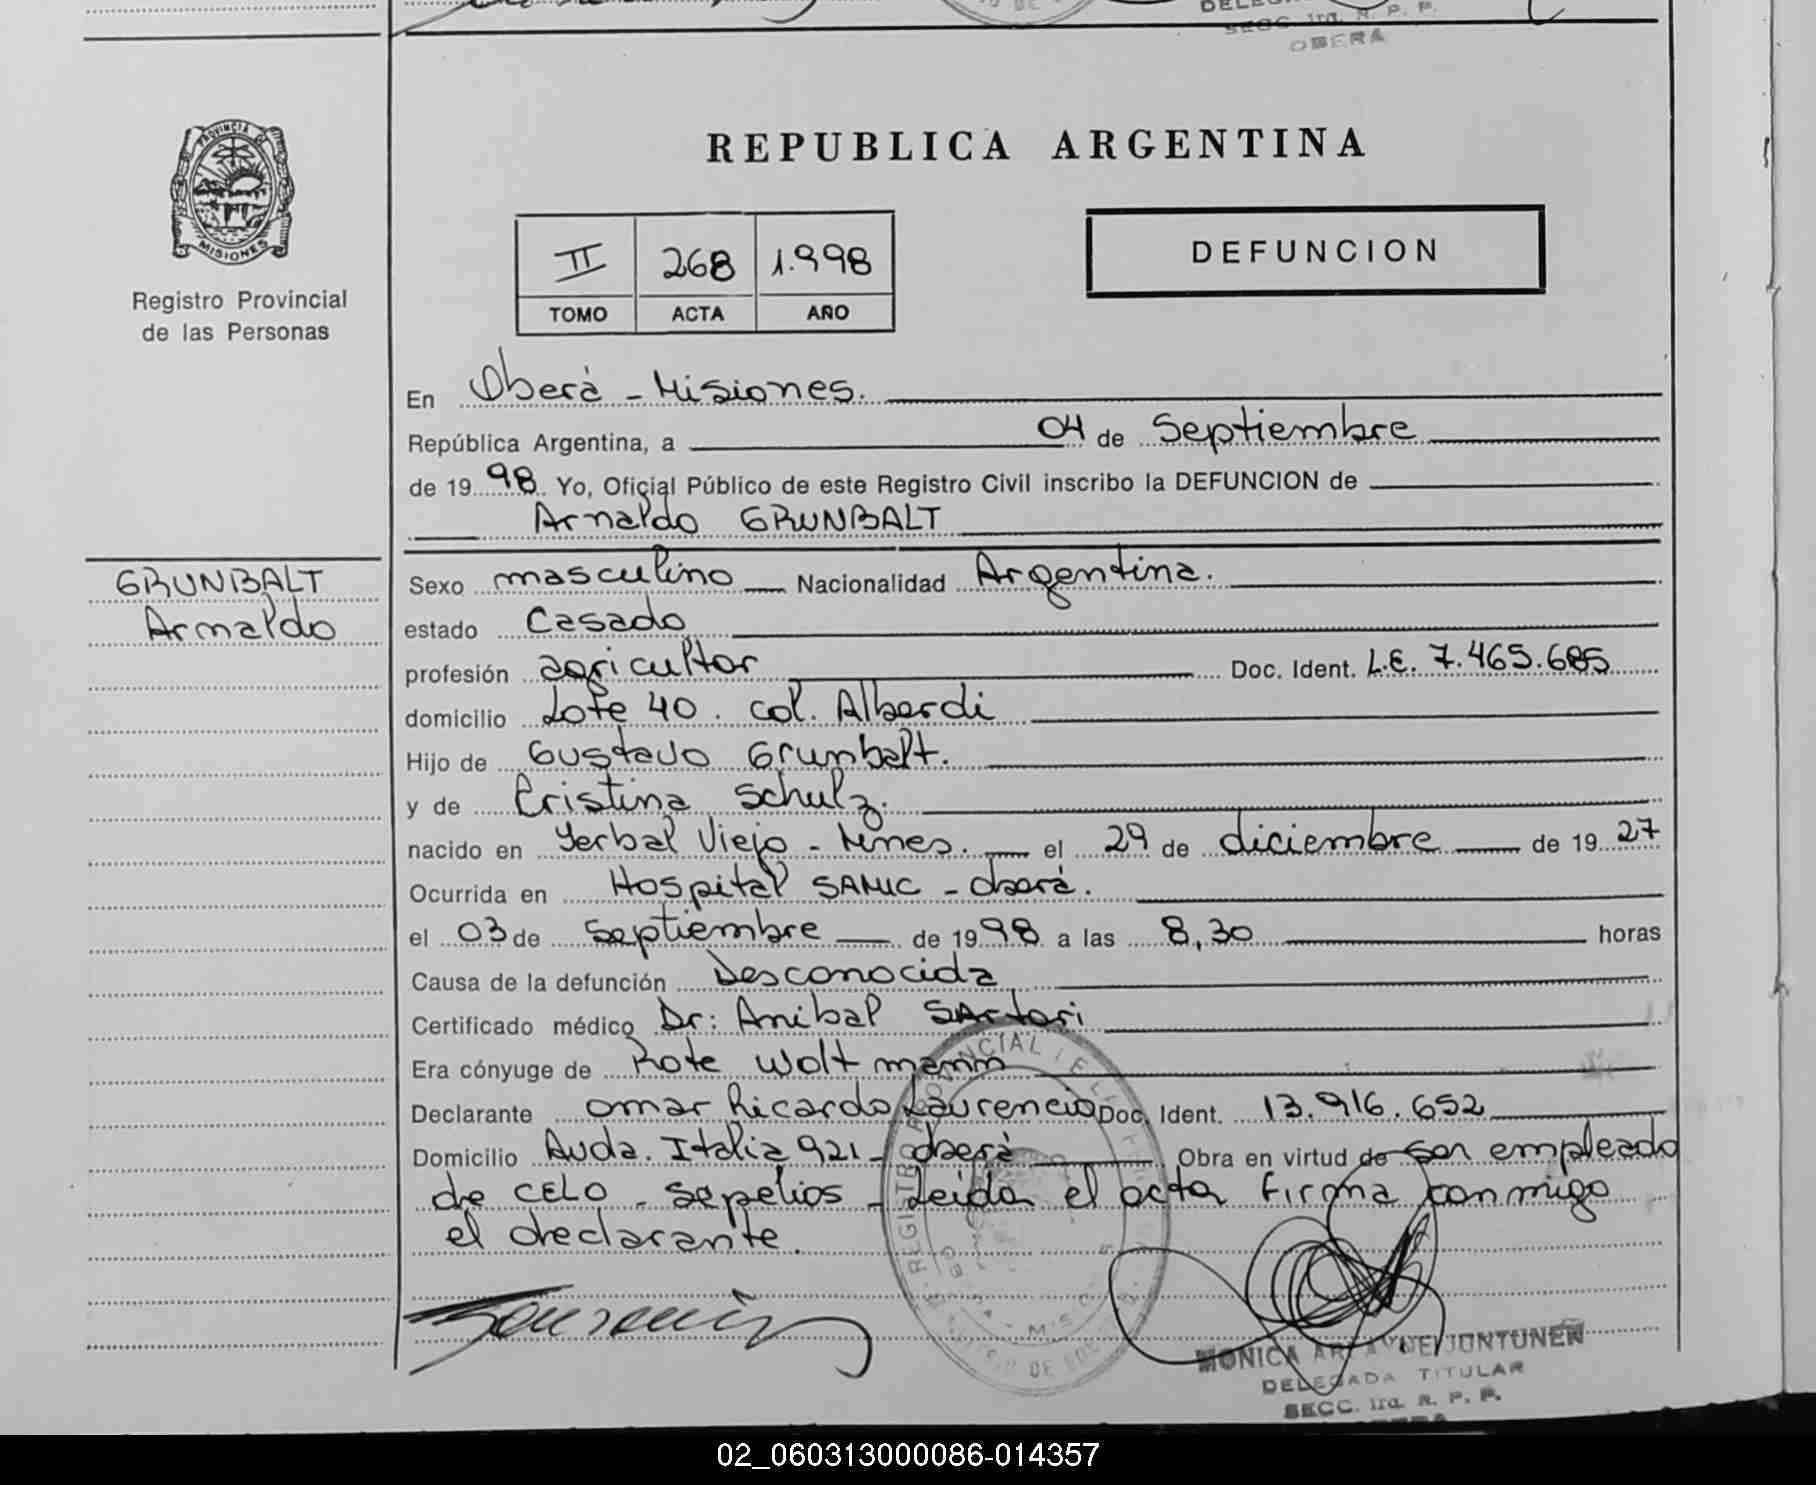 SECC. 1ra. R. P. P.
OBERA
PROVINCIA D
MISIONES
Registro Provincial
de las Personas
REPUBLICA ARGENTINA
II 268 1.998
TOMO ACTA AÑO
DEFUNCION
En Oberá - Misiones.
República Argentina, a 04 de Septiembre
de 1998. Yo, Oficial Público de este Registro Civil inscribo la DEFUNCION de
Arnaldo GRUNBALT
GRUNBALT
Arnaldo
Sexo masculino Nacionalidad Argentina.
estado Casado
profesión agricultor Doc. Ident. L.E. 7.465.685
domicilio Lote 40. col. Alberdi
Hijo de Gustavo Grunbalt.
y de Cristina Schulz.
nacido en Yerbal Viejo - Mnes. el 29 de diciembre de 1927
Ocurrida en Hospital SAMIC - Oberá.
el 03 de Septiembre de 1998 a las 8,30 horas
Causa de la defunción Desconocida
Certificado médico Dr: Anibal SArtori
Era cónyuge de Rote Woltmann
Declarante Omar Ricardo Laurencio Doc. Ident. 13.916.652
Domicilio Avda. Italia 921 - Oberá Obra en virtud de ser empleado
de CELO - Sepelios - Leida el acta Firma conmigo
el declarante.
MONICA JUNTUNEN
DELEGADA TITULAR
SECC. 1ra. R. P. P.
02_060313000086-014357